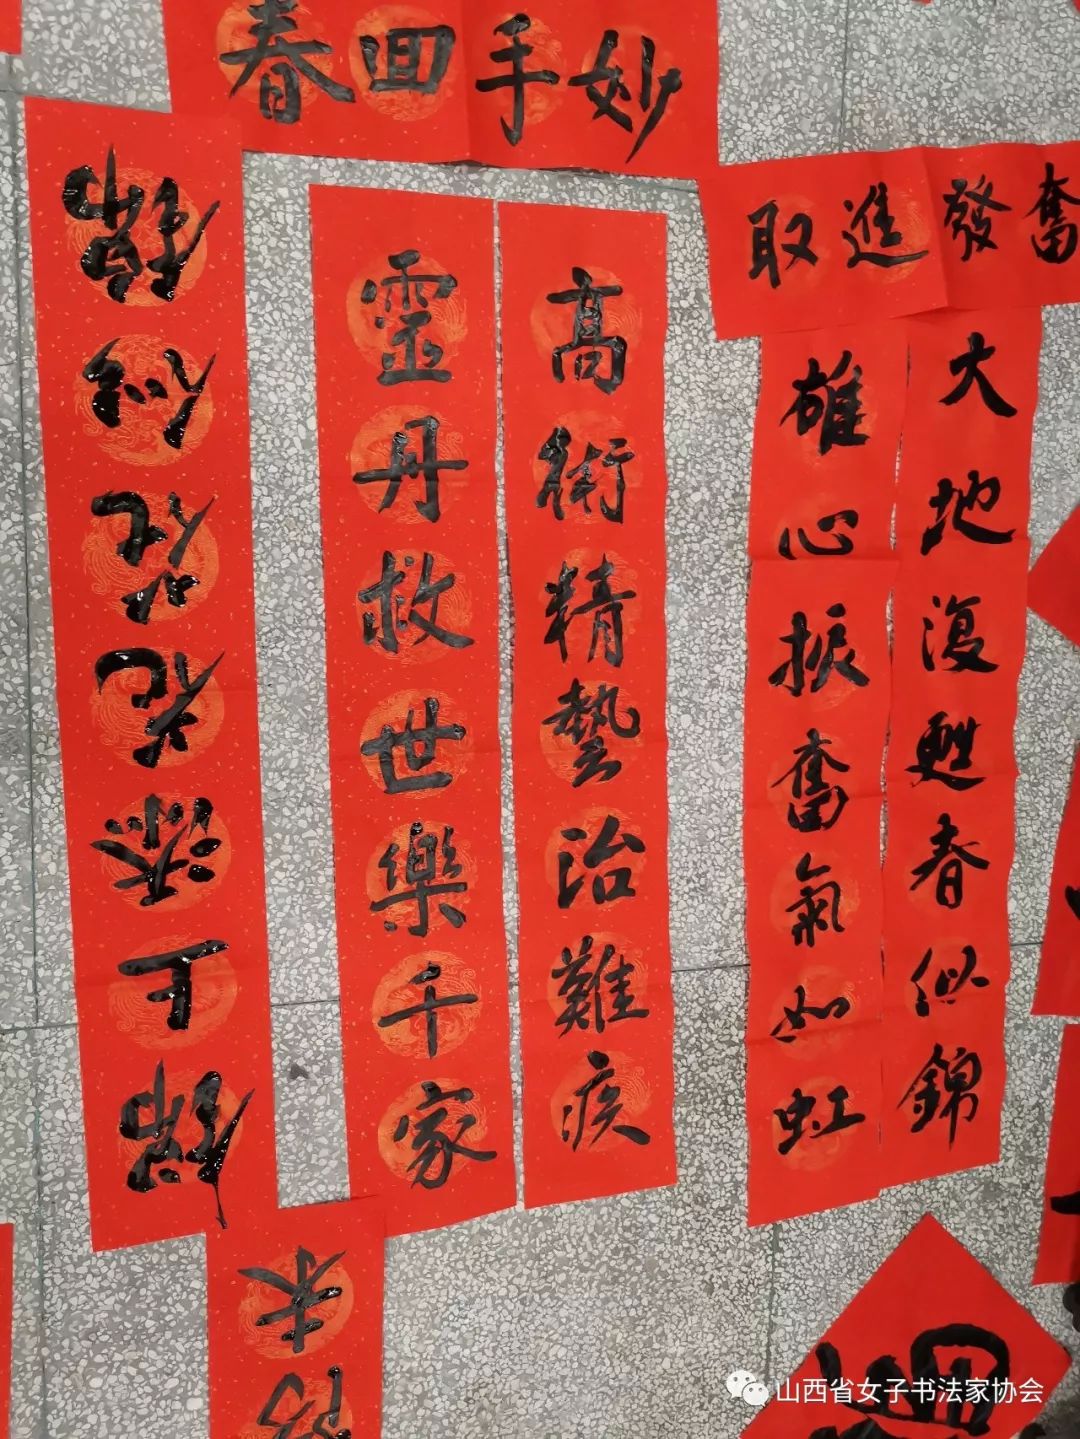 妙手回春
高術精藝治難疾
靈丹救世樂千家
奮發進取
大地復甦春似錦
雄心振奮氣如虹
錦上添花花似錦
山西省女子书法家协会